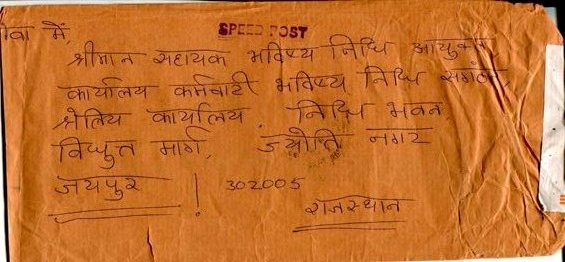 SPEED POST
सेवा में
श्रीमान सहायक भविष्य निधि आयुक्त
कार्यालय कर्मचारी भविष्य निधि संगठन
क्षेत्रिय कार्यालय, निधि भवन
विद्युत मार्ग, ज्योति नगर
जयपुर ! 302005
राजस्थान